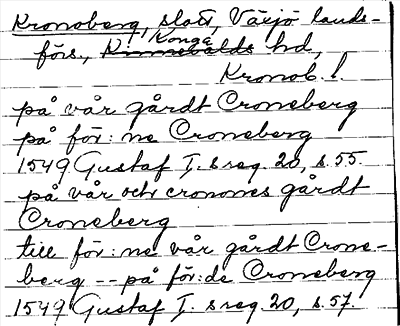 Kronoberg, slott, Växjö lands-
förs., Konga hd,
Kronob. l.
på vår gårdt Croneberg
på för:ne Croneberg
1549 Gustaf I:s reg. 20, s. 55.
på vår och cronones gårdt
Croneberg
till för:ne vår gårdt Crone-
berg -- på för:de Croneberg
1549 Gustaf I:s reg. 20, s. 57.